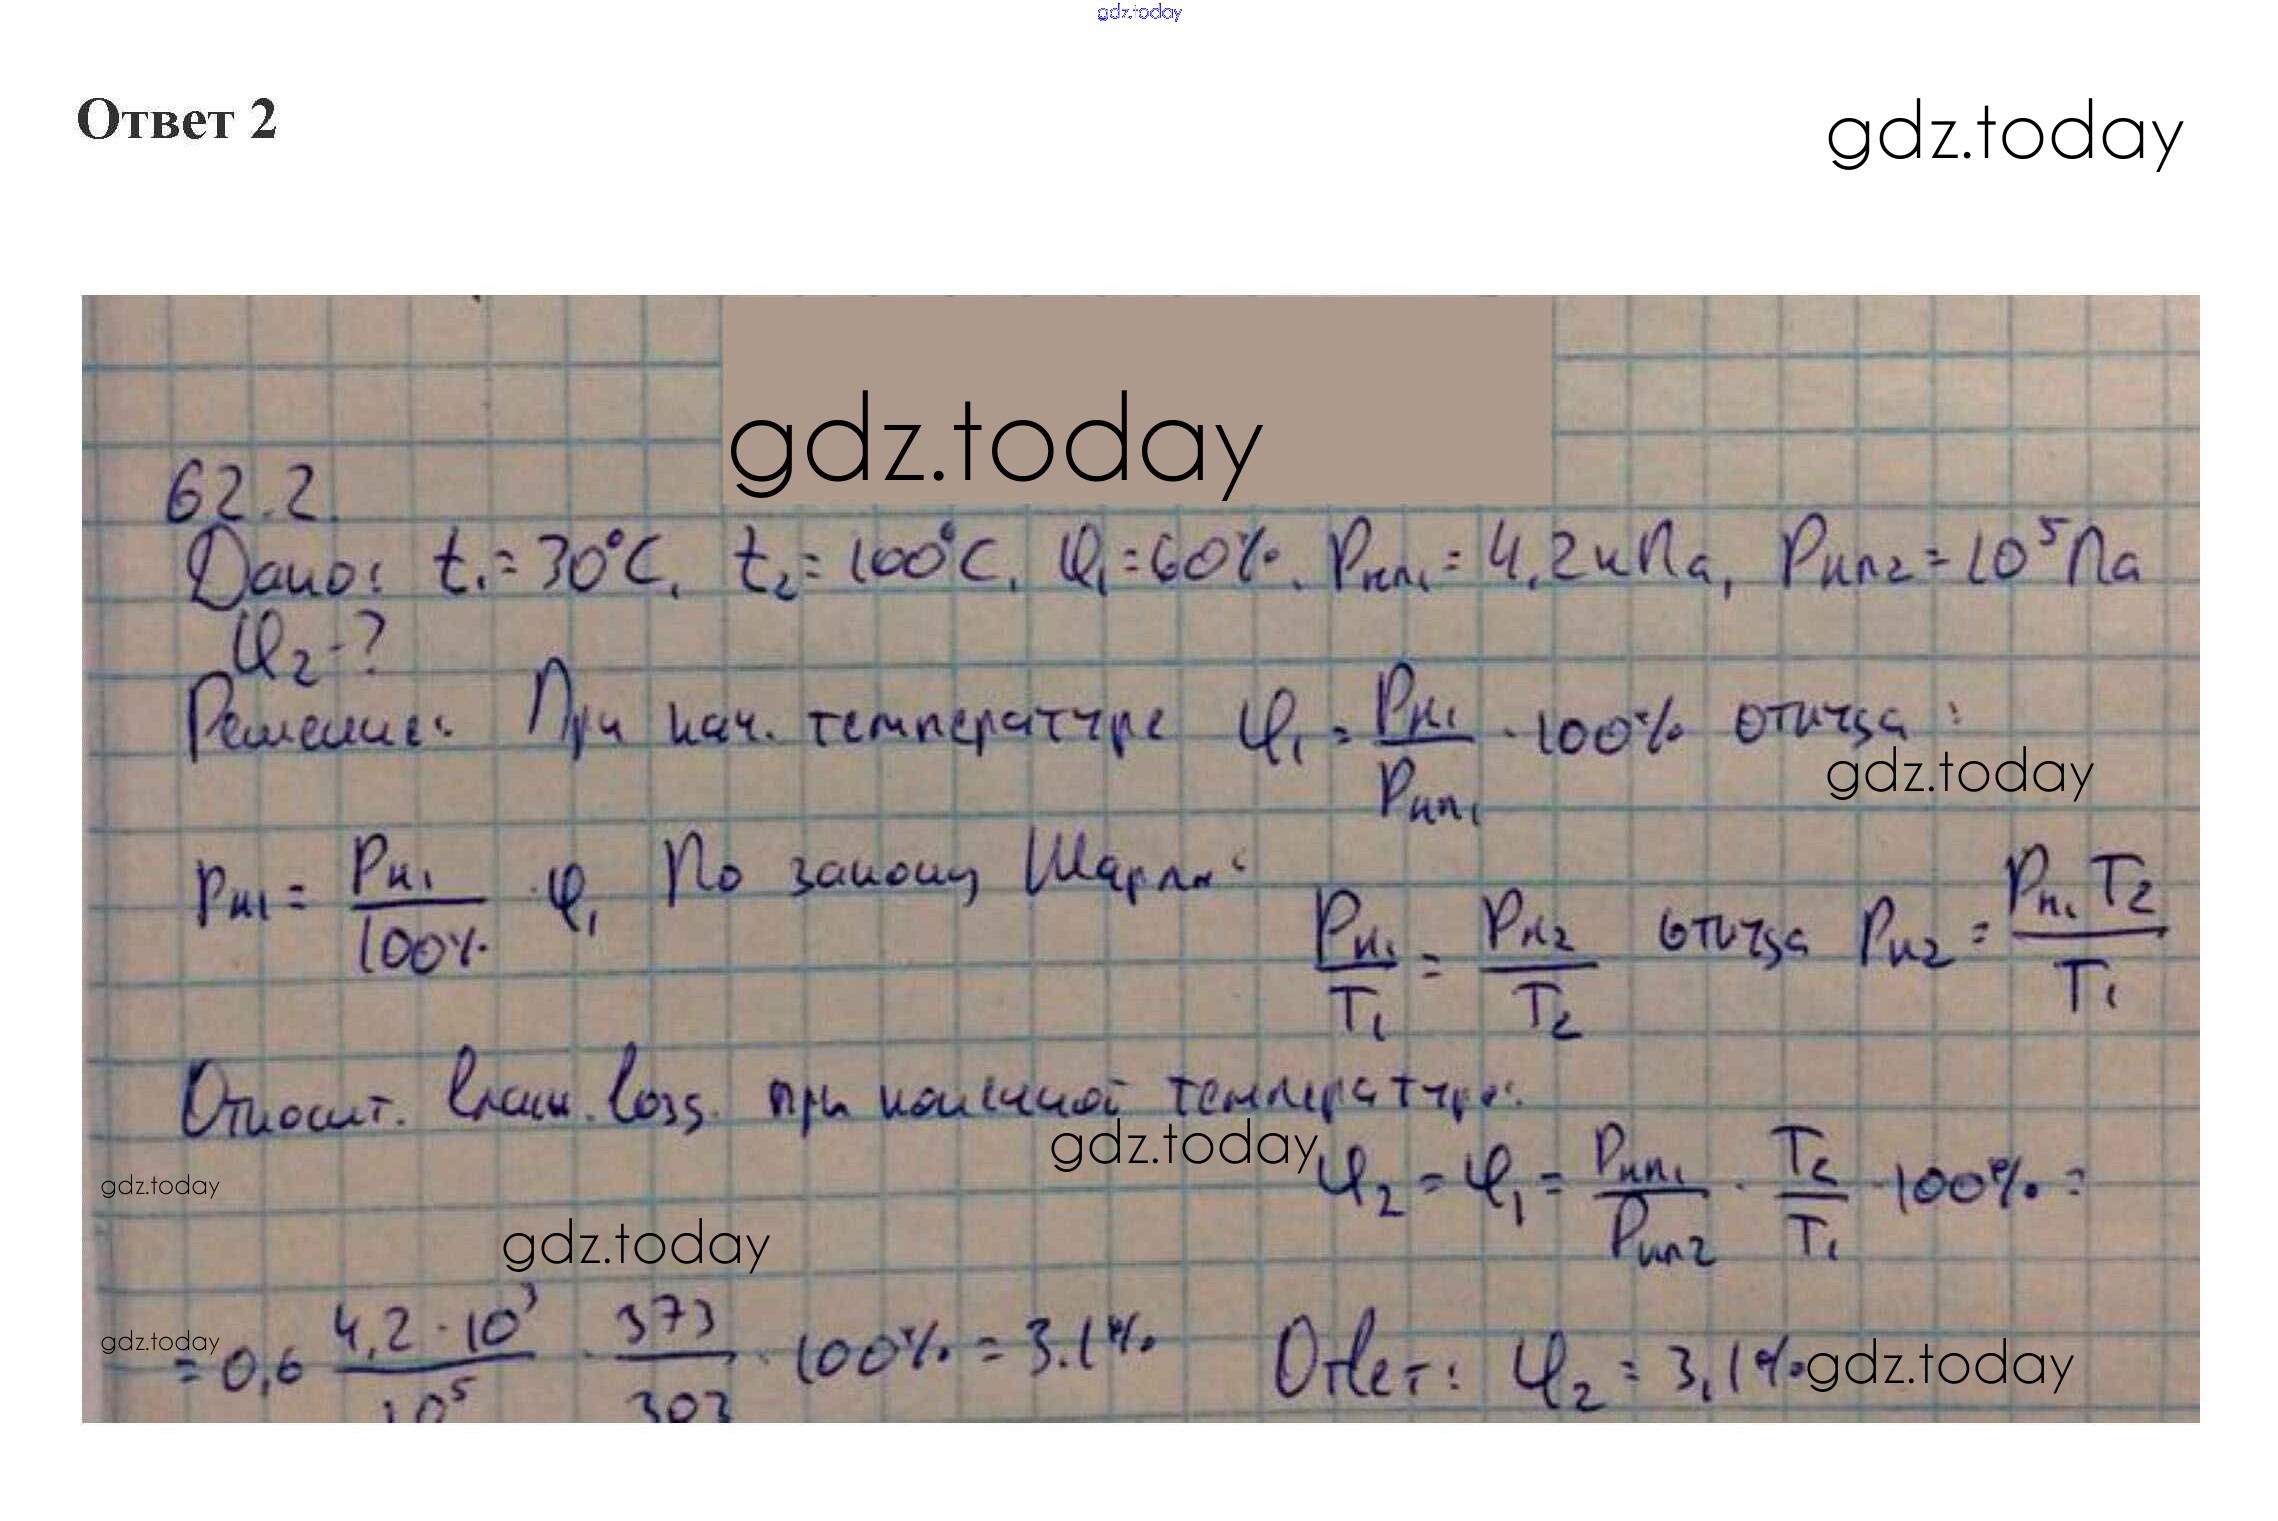 gdz.today
Ответ 2
gdz.today
gdz.today
62.2.
Дано: t₁ = 30°C, t₂ = 100°C, φ₁ = 60%, Pнп₁ = 4,2 кПа, Pнп2 = 10⁵ Па
φ₂ - ?
Решение: При нач. температуре φ₁ = Pн₁/Pнп₁ · 100% откуда:
gdz.today
Pн1 = Pн₁/100% · φ₁ По закону Шарля: Pн₁/T₁ = Pн2/T₂ откуда Pн2 = Pн₁ T₂/T₁
Относит. влажн. возд. при конечной температуре:
gdz.today
φ₂ = φ₁ = Pнп₁/Pнп2 · T₂/T₁ · 100% =
gdz.today
gdz.today
= 0,6 4,2 · 10³/10⁵ · 373/303 · 100% = 3.1% Ответ: φ₂ = 3,1%
gdz.today
gdz.today